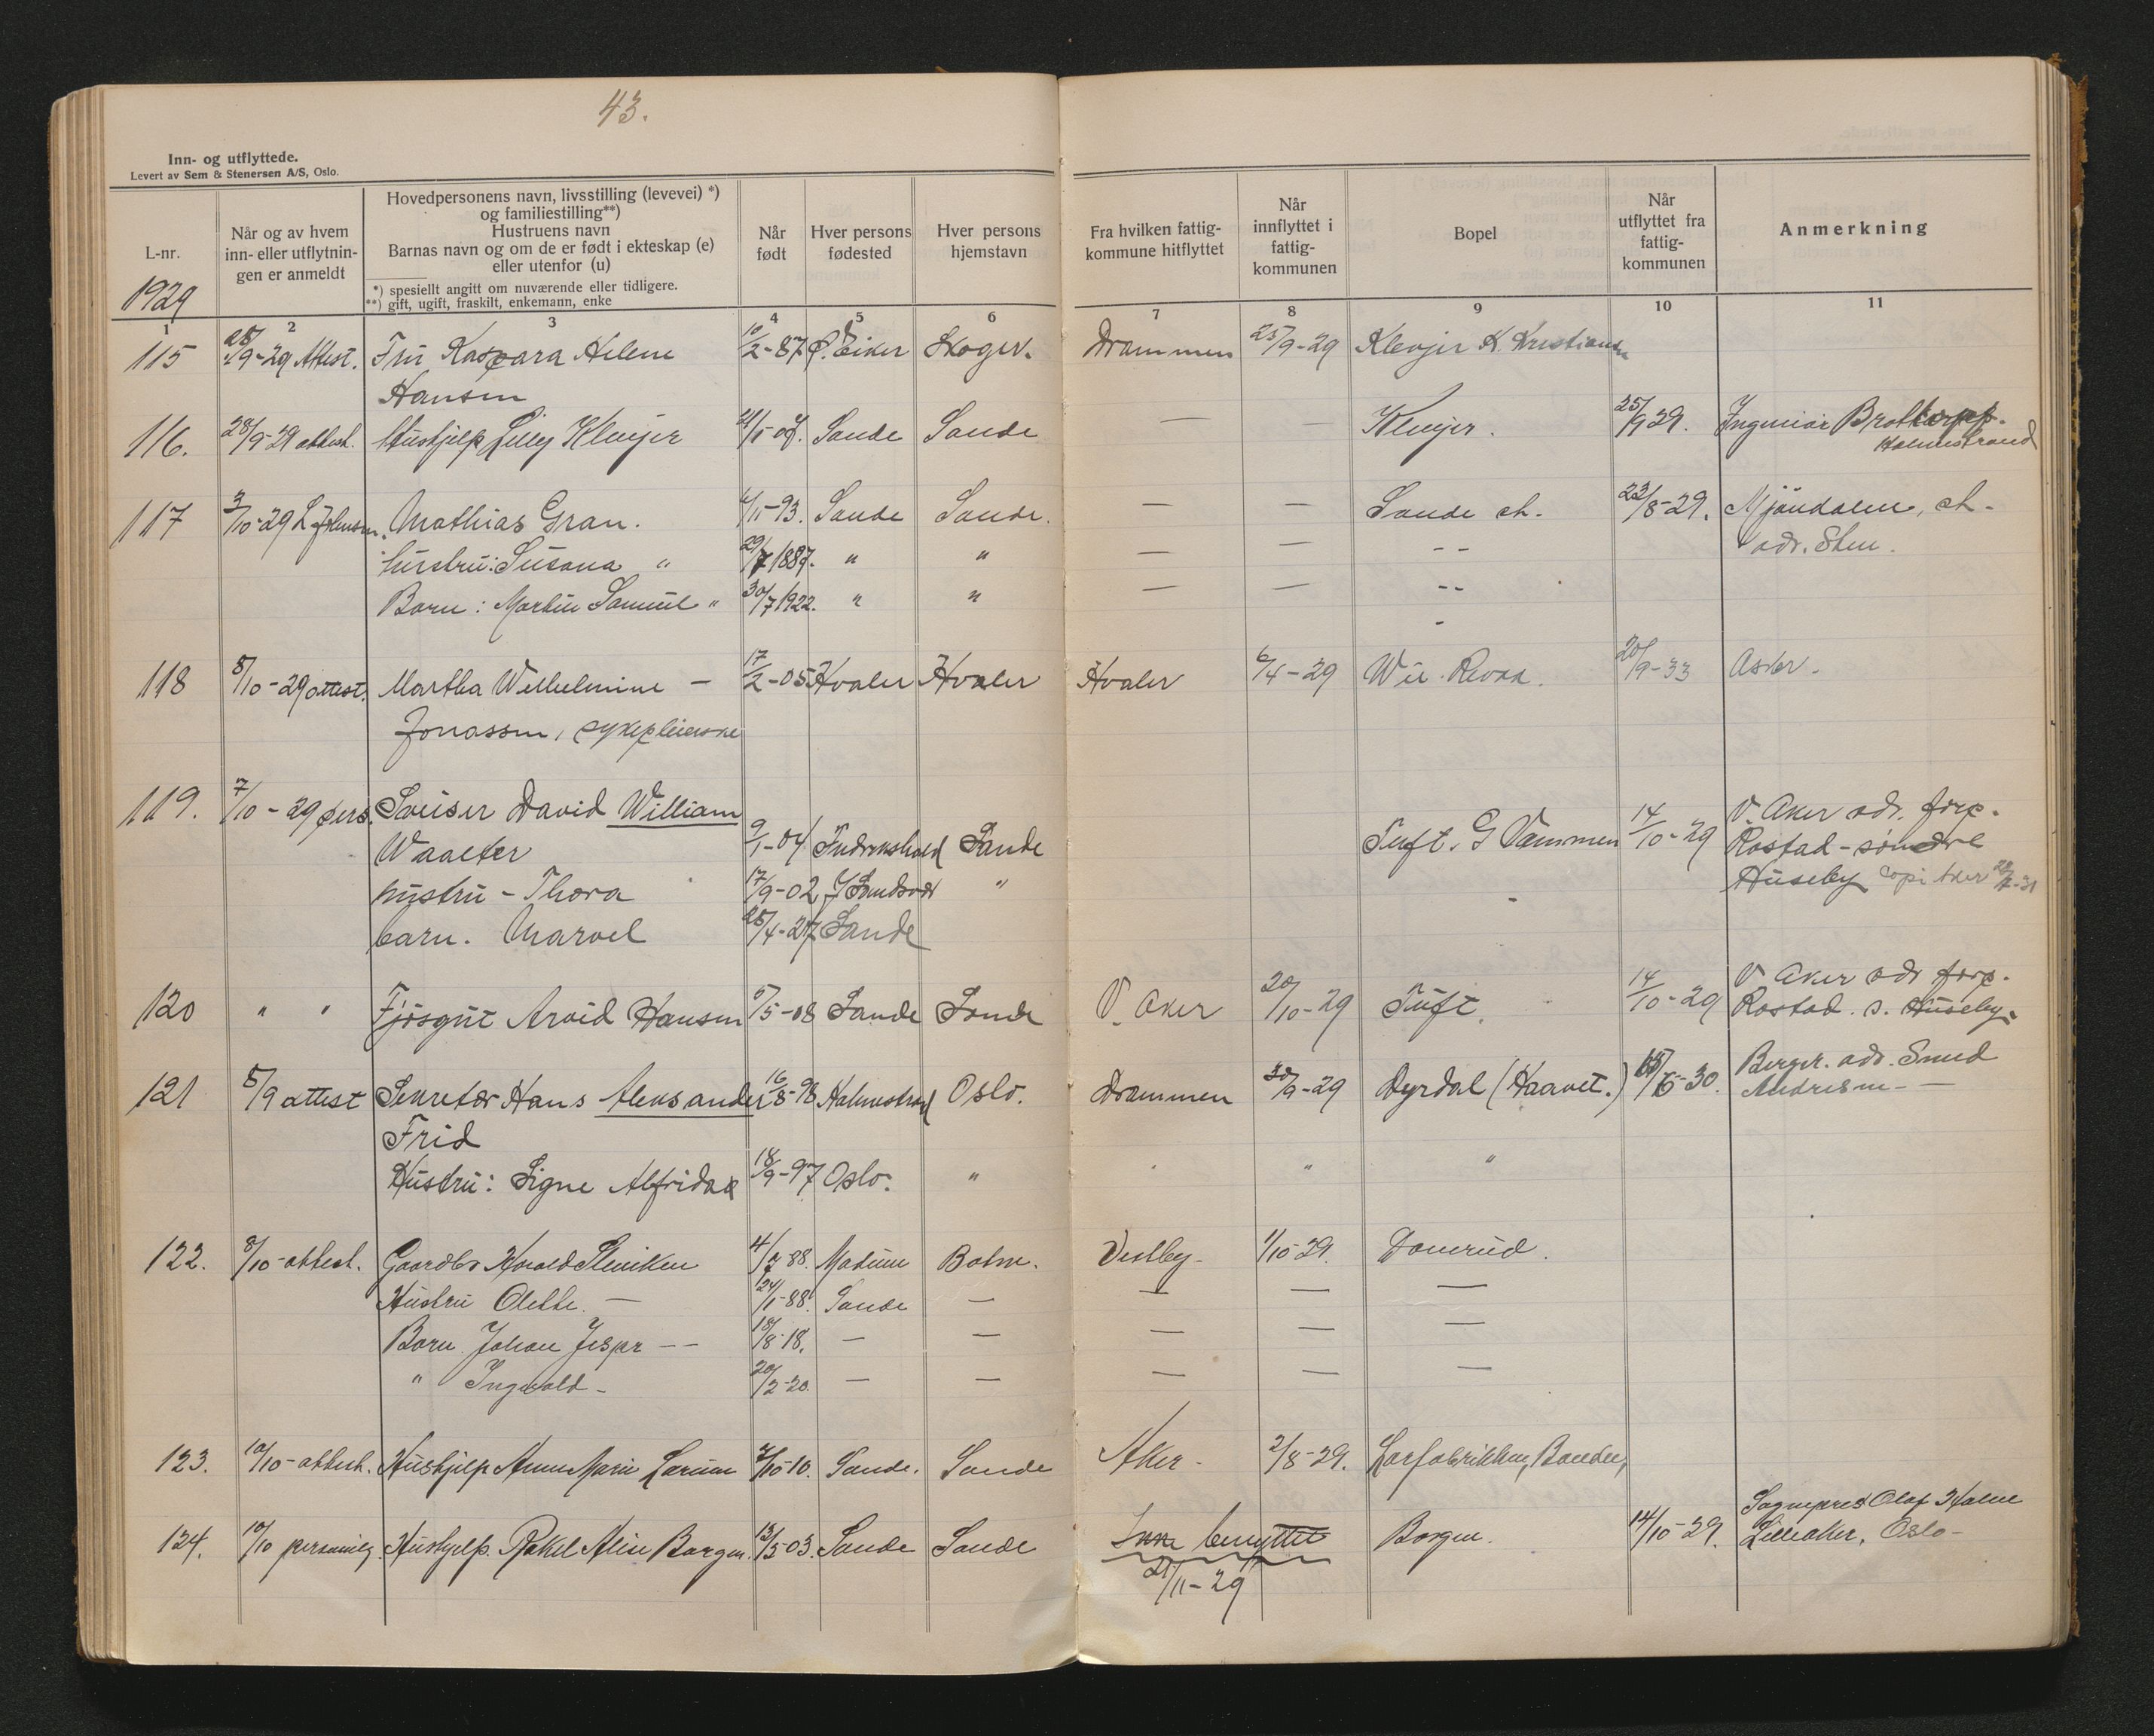 43.
Inn- og utflyttede.
Levert av Sem & Stenersen A/S, Oslo.
L-nr.
1929
Når og av hvem
inn- eller utflytnin-
gen er anmeldt
Hovedpersonens navn, livsstilling (levevei) *)
og familiestilling**)
Hustruens navn
Barnas navn og om de er født i ekteskap (e)
eller utenfor (u)
*) spesiellt angitt om nuværende eller tidligere.
**) gift, ugift, fraskilt, enkemann, enke
Når
født
Hver persons
fødested
Hver persons
hjemstavn
Fra hvilken fattig-
kommune hitflyttet
Når
innflyttet i
fattig-
kommunen
Bopel
Når
utflyttet fra
fattig-
kommunen
Anmerkning
1 2 3 4 5 6 7 8 9 10 11
115 28/9-29 Attest. Fru Kaspara Helene 10/2-87 Ø. Eiker Skoger. Drammen 25/9-29 Klevjer K. Kristiansen
Hansen
116. 28/9-29 attest. Hushjelp Lilly Klevjer Sande Sande — — Klevjer. 25/9 29. Ingeniør
Holmestrand
117 3/10-29 L Johnsen. Mathias Gran. 4/11-93. Sande Sande. — — Sande st. 23/8-29. Mjöndalen, st.
hustru: Susana " 29/7 1887. " " — — -- adr. Sten.
Barn: Martin Samuel " 30/7 1922. " " — — --
118 8/10-29 attest. Martha Wilhelmine — 17/2-05 Hvaler Hvaler Hvaler 6/4-29 Revaa. 20/9-33 Asker.
Jonassen, sykepleierske
119. 7/10-29 pers. David William
Waaler 9/1-04 Fredrikshald Sande Tuft. G Vammen 14/10-29 V. Aker adr. forp.
Rostad - söndre
hustru - Thora 17/9-02 " Huseby copi Aker
barn. Marvel 25/4-27 Sande
120 " " Fjøsgut Arvid Hansen 5/5-08 Sande Sande V. Aker 20/10-29 Tuft. 14/10-29 V Aker adr forp.
Rostad. s. Huseby.
121 5/9 attest Sekretær Hans Aleksander 16/8-98 Holmestrand Oslo. Drammen 30/9-29 Dyrdal (Haavet.) Berger. adr. Smed
Andresen
Frid
Hustru: Signe Alfrida 18/9-97 Oslo. " " " "
122. 8/10-attest. Gaardbr Harald 4/7-88. Modum Botne. Vestby 1/10-29. Donerud.
Hustru Olette. — 24/1-88. Sande — — — —
Barn. Johan Jesper -- 10/8-18. — — — — —
" Ingvald - 20/2-20. — — — — —
123. 10/10-attest. Hushjelp Anna Marie Lorum 7/10-10. Sande. Sande Aker 2/8-29.
124. 10/10 personlig Hushjelp. Rakel Alise Borgen. 13/5-03. Sande Sande Ikke benyttet Borgen. 14/10-29. Sogneprest Olaf Holm
Lilleaker, Oslo
21/11-29